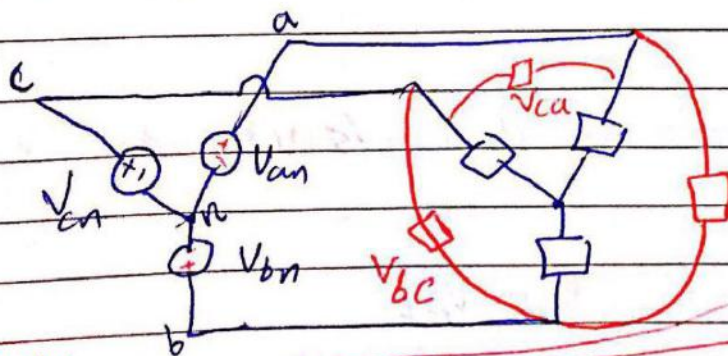 a
c
Vca
Van
Vcn
n
Vbn
Vbc
b